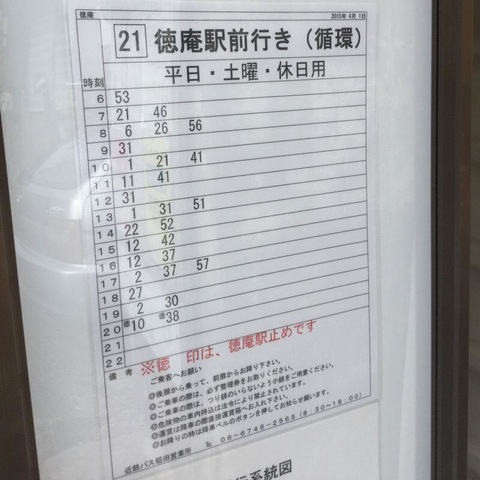 徳庵
2015年 4月 1日
21 徳庵駅前行き（循環）
時刻 平日・土曜・休日用
6 53
7 21 46
8 6 26 56
9 31
10 1 21 41
11 11 41
12 31
13 1 31 51
14 22 52
15 12 42
16 12 37
17 2 37 57
18 27
19 2 30
20 徳10 徳38
21
22
備考 ※徳 印は、徳庵駅止めです
ご乗客へお願い
◎後扉から乗って、前扉からお降り下さい。
◎ご乗車の際は、必ず整理券をお取りください。
◎ご乗車の際は、つり銭のいらないよう小銭をご用意ください。
◎危険物の車内持込は法令により禁止されています。
◎運賃は降車の際直接運賃箱へお入れ下さい。
◎お降りの時は降車ベルのボタンを押してお知らせ願います。
近鉄バス稲田営業所 ℡ 06-6746-2565(8:30~18:00)
系統図